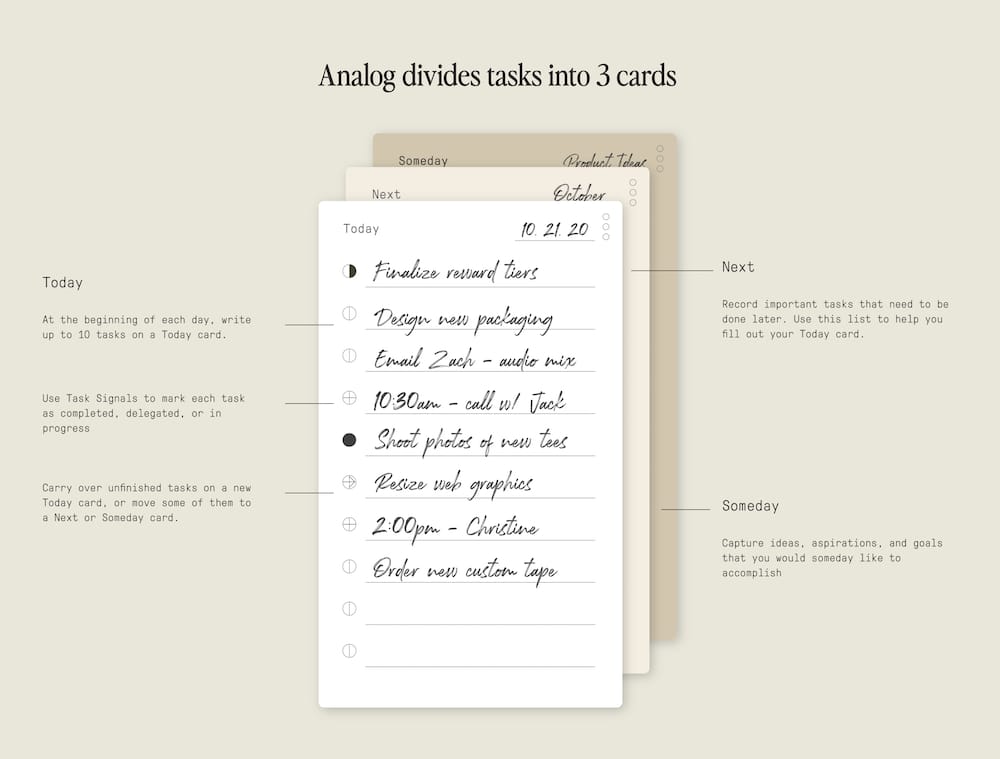 Analog divides tasks into 3 cards
Someday
Product Ideas
Next
October
Today
10. 21. 20
Finalize reward tiers
Design new packaging
Email Zach - audio mix
10:30am - call w/ Jack
Shoot photos of new tees
Resize web graphics
2:00pm - Christine
Order new custom tape
Today
At the beginning of each day, write
up to 10 tasks on a Today card.
Use Task Signals to mark each task
as completed, delegated, or in
progress
Carry over unfinished tasks on a new
Today card, or move some of them to
a Next or Someday card.
Next
Record important tasks that need to be
done later. Use this list to help you
fill out your Today card.
Someday
Capture ideas, aspirations, and goals
that you would someday like to
accomplish